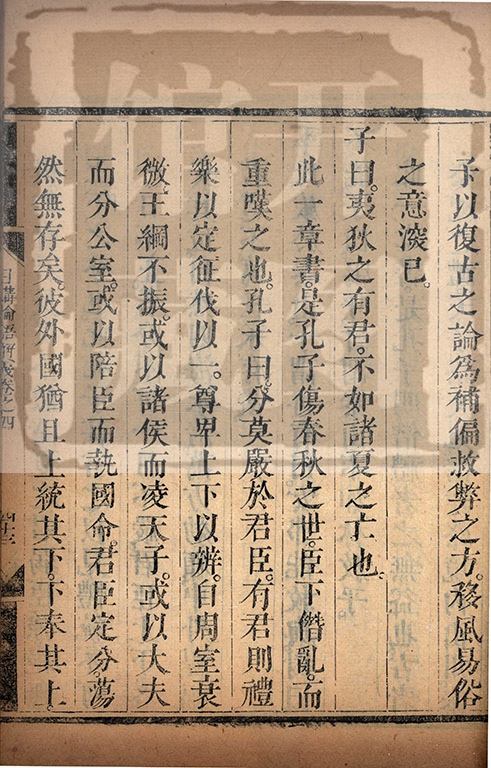 子以復古之論爲補偏救弊之方。移風易俗
之意深已。
子曰。夷狄之有君。不如諸夏之亡也。
此一章書。是孔子傷春秋之世。臣下僭亂。而
重嘆之也。孔子曰。分莫嚴於君臣。有君則禮
樂以定征伐以一。尊卑上下以辨。自周室衰
微。王綱不振。或以諸侯而凌天子。或以大夫
而分公室。或以陪臣而執國命。君臣定分。蕩
然無存矣。彼外國猶且上統其下。下奉其上。
日講論語解義卷之四